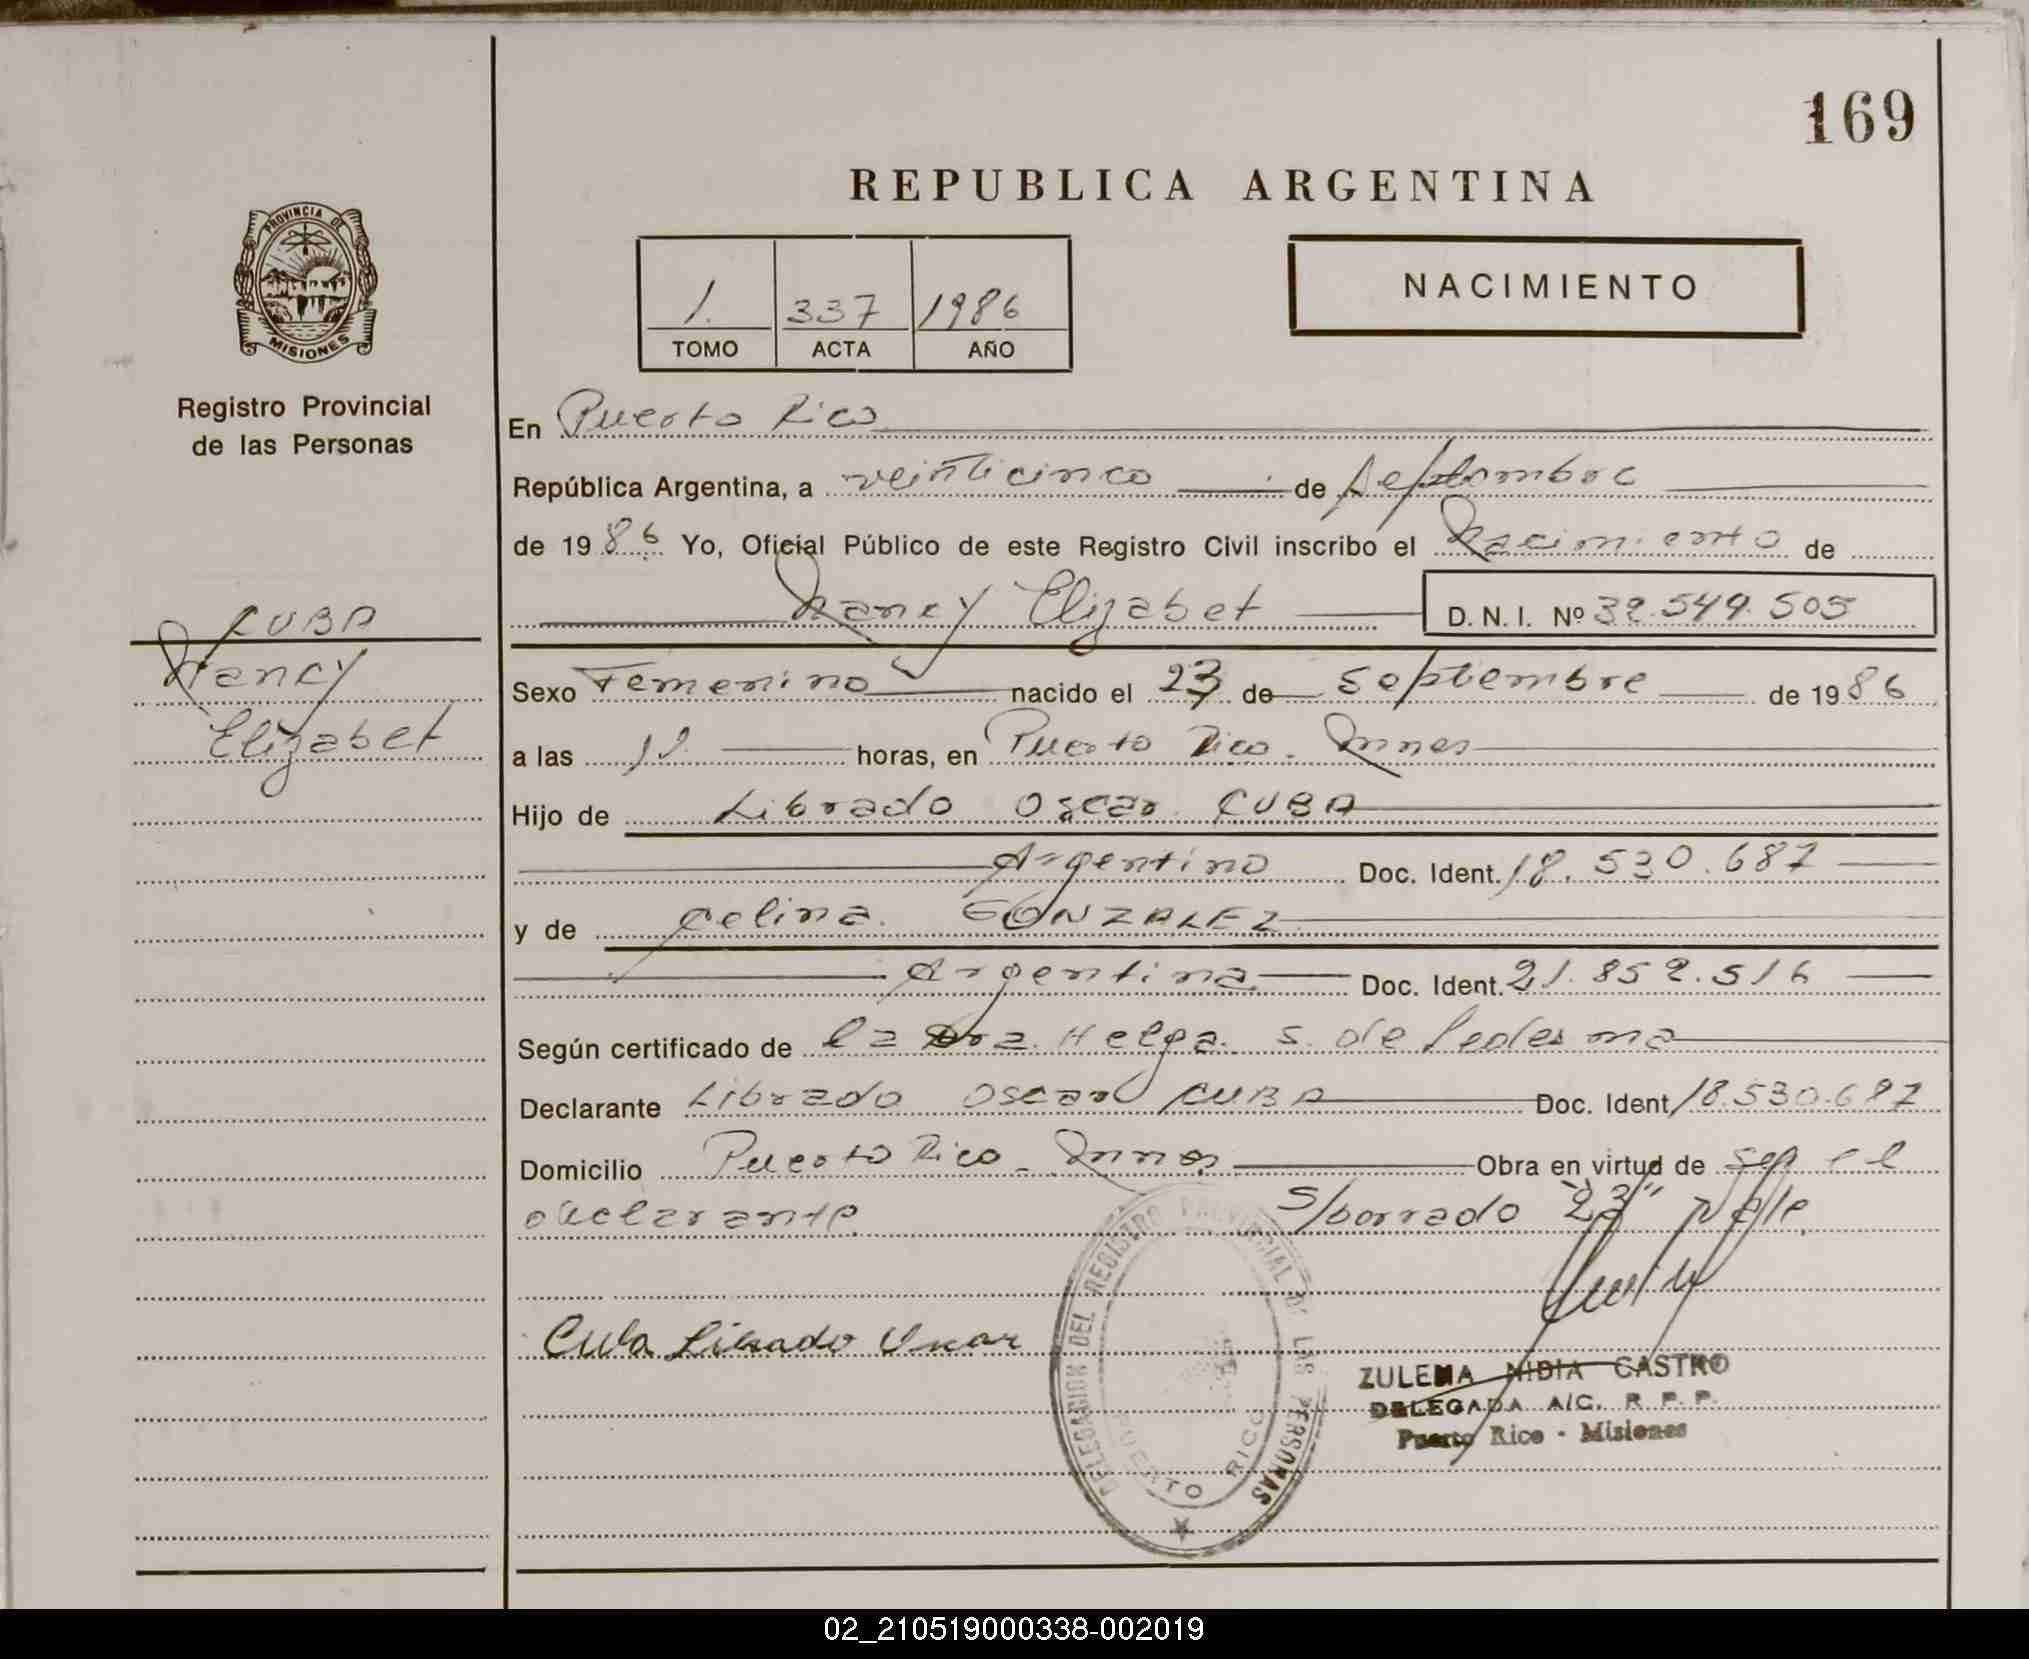 169
REPUBLICA ARGENTINA
PROVINCIA DE
MISIONES
Registro Provincial
de las Personas
1. 337 1986
TOMO ACTA AÑO
NACIMIENTO
En Puerto Rico
República Argentina, a veinticinco de Septiembre
de 1986 Yo, Oficial Público de este Registro Civil inscribo el Nacimiento de
Nancy Elizabet D. N. I. Nº 32.549.505
CUBA
Nancy
Elizabet
Sexo Femenino nacido el 23 de Septiembre de 1986
a las horas, en Puerto Rico. Mnes
Hijo de Librado Oscar CUBA
Argentino Doc. Ident. 18.530.687
y de Celina GONZALEZ
Argentina Doc. Ident. 21.852.516
Según certificado de la Dra. Helga S. de Ledesma
Declarante Librado Oscar CUBA Doc. Ident 18.530.687
Domicilio Puerto Rico - Mnes Obra en virtud de ser el
declarante. S/borrado "23" Vale.
Cuba Librado Oscar
DELEGACION DEL REGISTRO PROVINCIAL DE LAS PERSONAS
PUERTO RICO
ZULEMA NIDIA CASTRO
DELEGADA A/C. R. P. P.
Puerto Rico - Misiones
02_210519000338-002019